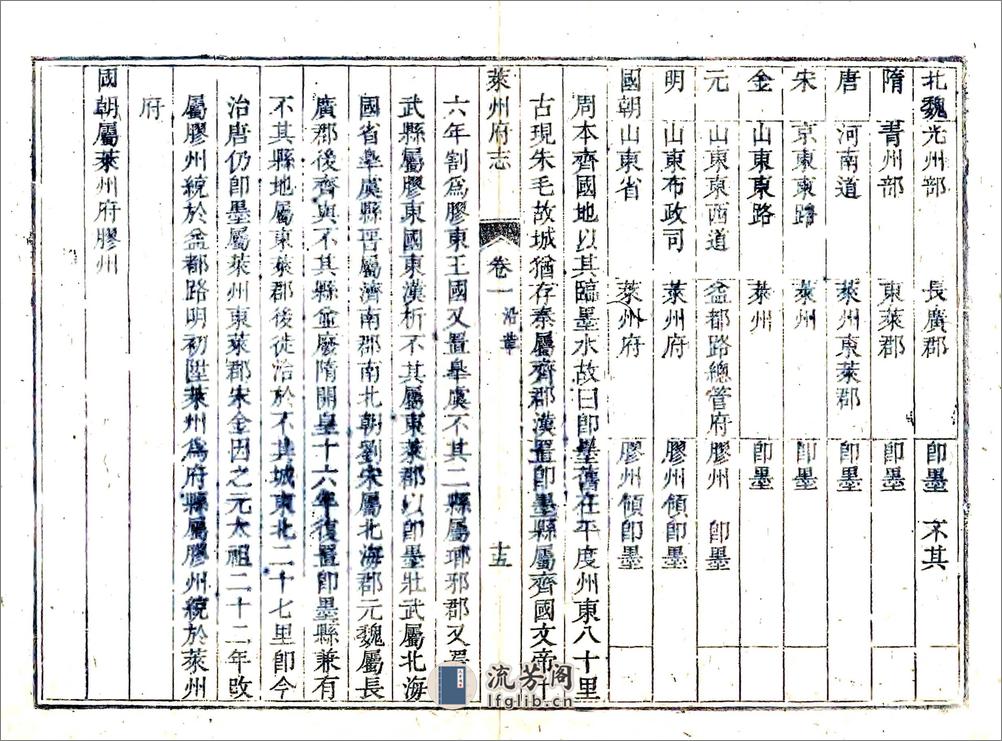 北魏 光州部 長廣郡 卽墨 不其
隋 靑州部 東萊郡 卽墨
唐 河南道 萊州東萊郡 卽墨
宋 京東東路 萊州 卽墨
金 山東東路 萊州 卽墨
元 山東東西道 益都路總管府 膠州 卽墨
明 山東布政司 萊州府 膠州領卽墨
國朝 山東省 萊州府 膠州領卽墨
周本齊國地以其臨墨水故曰卽墨舊在平度州東八十里
古現朱毛故城猶存秦屬齊郡漢置卽墨縣屬齊國文帝十
萊州府志 卷一 沿革 十五
六年割爲膠東王國又置皋虞不其二縣屬琅邪郡又置
武縣屬膠東國東漢析不其屬東萊郡以卽墨壯武屬北海
國省皋虞縣晉屬濟南郡南北朝劉宋屬北海郡元魏屬長
廣郡後齊與不其縣並廢隋開皇十六年復置卽墨縣兼有
不其縣地屬東萊郡後徙治於不其城東北二十七里卽今
治唐仍卽墨屬萊州東萊郡宋金因之元太祖二十二年改
屬膠州統於益都路明初陞萊州爲府縣屬膠州統於萊州
府
國朝屬萊州府膠州
流芳阁
lfglib.cn